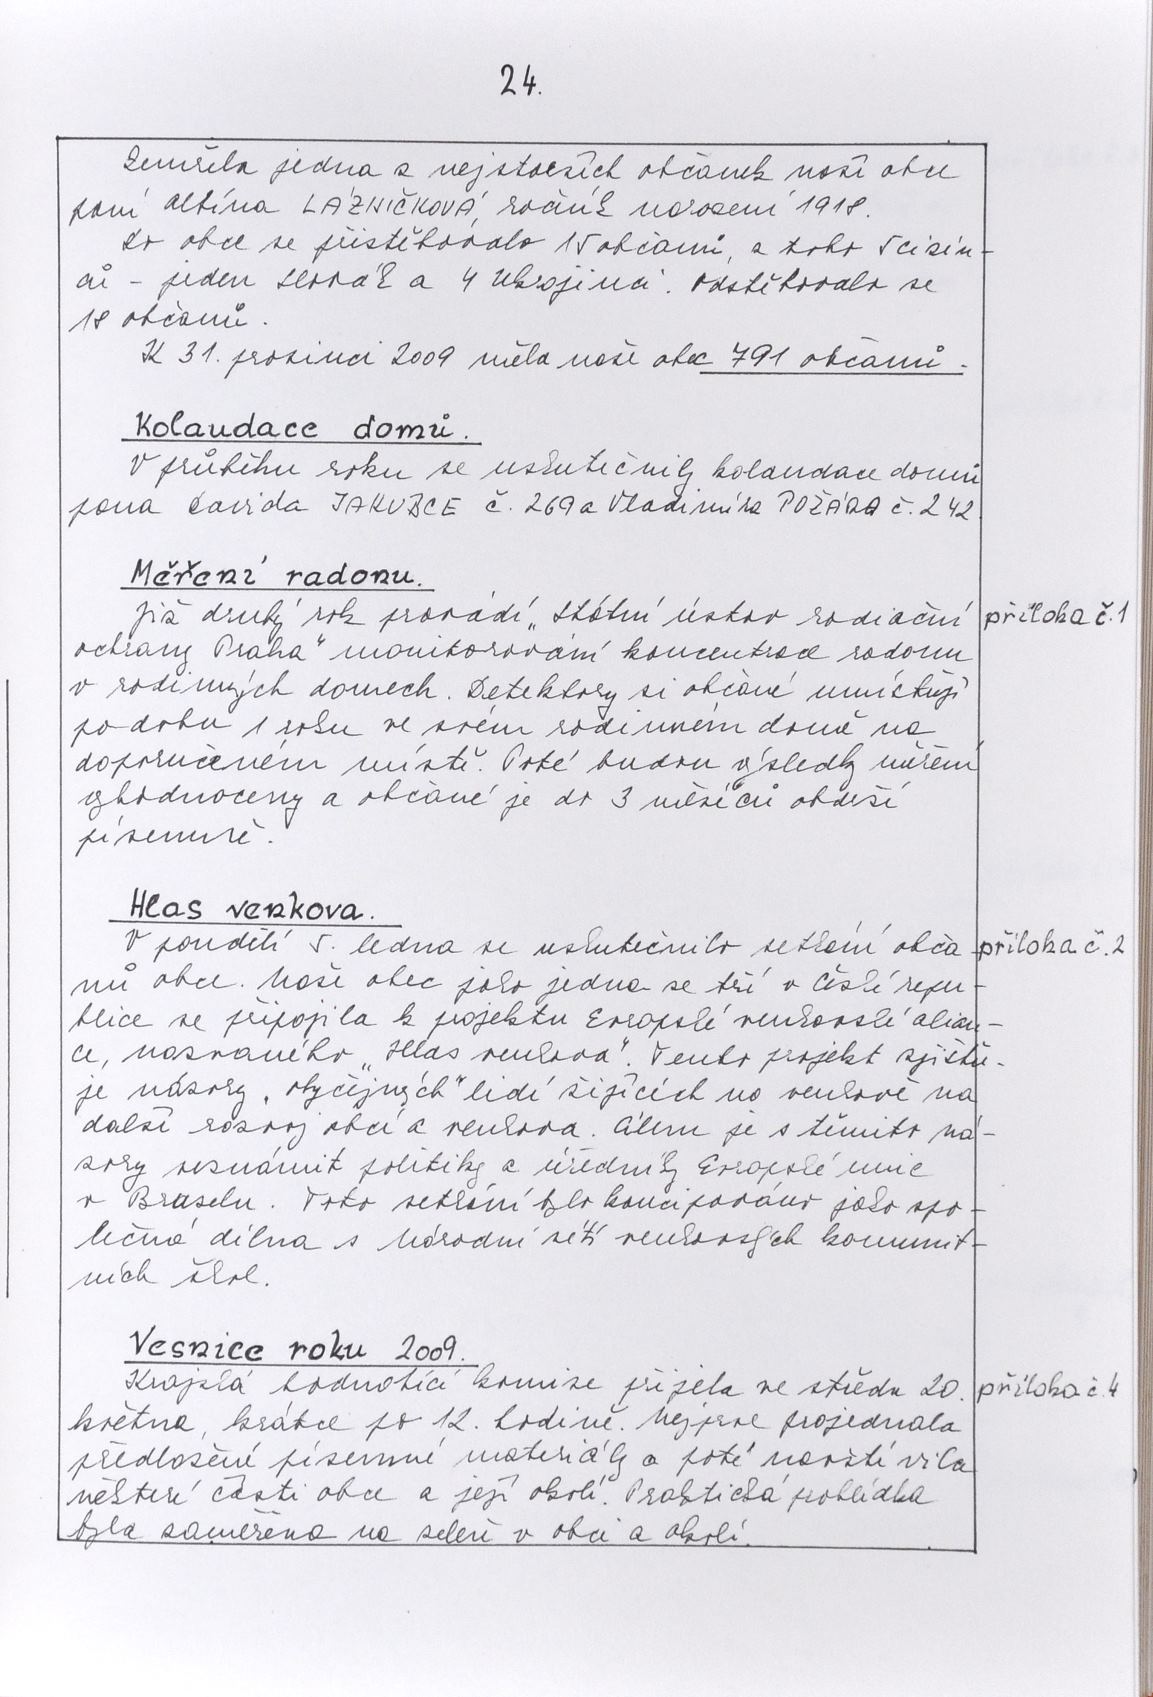 24.
Zemřela jedna z nejstarších občanek naší obce
paní Albína LÁZNIČKOVÁ, ročník narození 1918.
Do obce se přistěhovalo 15 občanů, z toho 5 cizin-
ců - jeden Slovák a 4 Ukrajinci. Odstěhovalo se
18 občanů.
K 31. prosinci 2009 měla naše obec 791 občanů.
Kolaudace domů.
V průběhu roku se uskutečnily kolaudace domů
pana Davida JAKUBCE č. 269 a Vladimíra POŽÁRA č. 242.
Měření radonu.
Již druhý rok provádí „Státní ústav radiační příloha č. 1
ochrany Praha" monitorování koncentrace radonu
v rodinných domech. Detektory si občané umístují
po dobu 1 roku ve svém rodinném domě na
doporučeném místě. Poté budou výsledky měření
vyhodnoceny a občané je do 3 měsíců obdrží
písemně.
Hlas venkova.
V pondělí 5. ledna se uskutečnilo setkání obča příloha č. 2
nů obce. Naše obec jako jedna ze tří v České repu-
blice se připojila k projektu Evropské venkovské alian-
ce, nazvaného „Hlas venkova". Tento projekt zjišťu-
je názory „obyčejných" lidí žijících na venkově na
další rozvoj obcí a venkova. Cílem je s těmito ná-
zory seznámit politiky a úředníky Evropské unie
v Bruselu. Toto setkání bylo koncipováno jako spo-
lečná dílna s Národní sítí venkovských komunit-
ních škol.
Vesnice roku 2009.
Krajská hodnotící komise přijela ve středu 20. příloha č. 4
května, krátce po 12. hodině. Nejprve projednala
předložené písemné materiály a poté navštívila
některé části obce a její okolí. Praktická prohlídka
byla zaměřena na zeleň v obci a okolí.